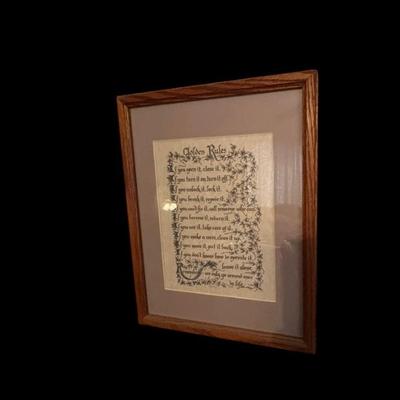 Golden Rules
If you open it, close it.
If you turn it on, turn it off.
If you unlock it, lock it.
If you break it, repair it.
If you can't fix it, call someone who can.
If you borrow it, return it.
If you use it, take care of it.
If you make a mess, clean it up.
If you move it, put it back.
If you don't know how to operate it,
leave it alone.
we only go around once